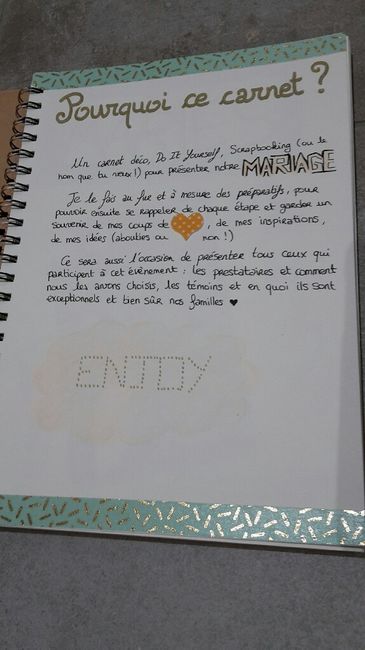 Pourquoi ce carnet ?
Un carnet déco, Do It Yourself, Scrapbooking (ou le
nom que tu veux !) pour présenter notre MARIAGE
Je le fais au fur et à mesure des préparatifs, pour
pouvoir ensuite se rappeler de chaque étape et garder un
souvenir de mes coups de , de mes inspirations,
de mes idées (abouties ou non !)
Ce sera aussi l'occasion de présenter tous ceux qui
participent à cet évènement : les prestataires et comment
nous les avons choisis, les témoins et en quoi ils sont
exceptionnels et bien sûr nos familles ♥
ENJOY